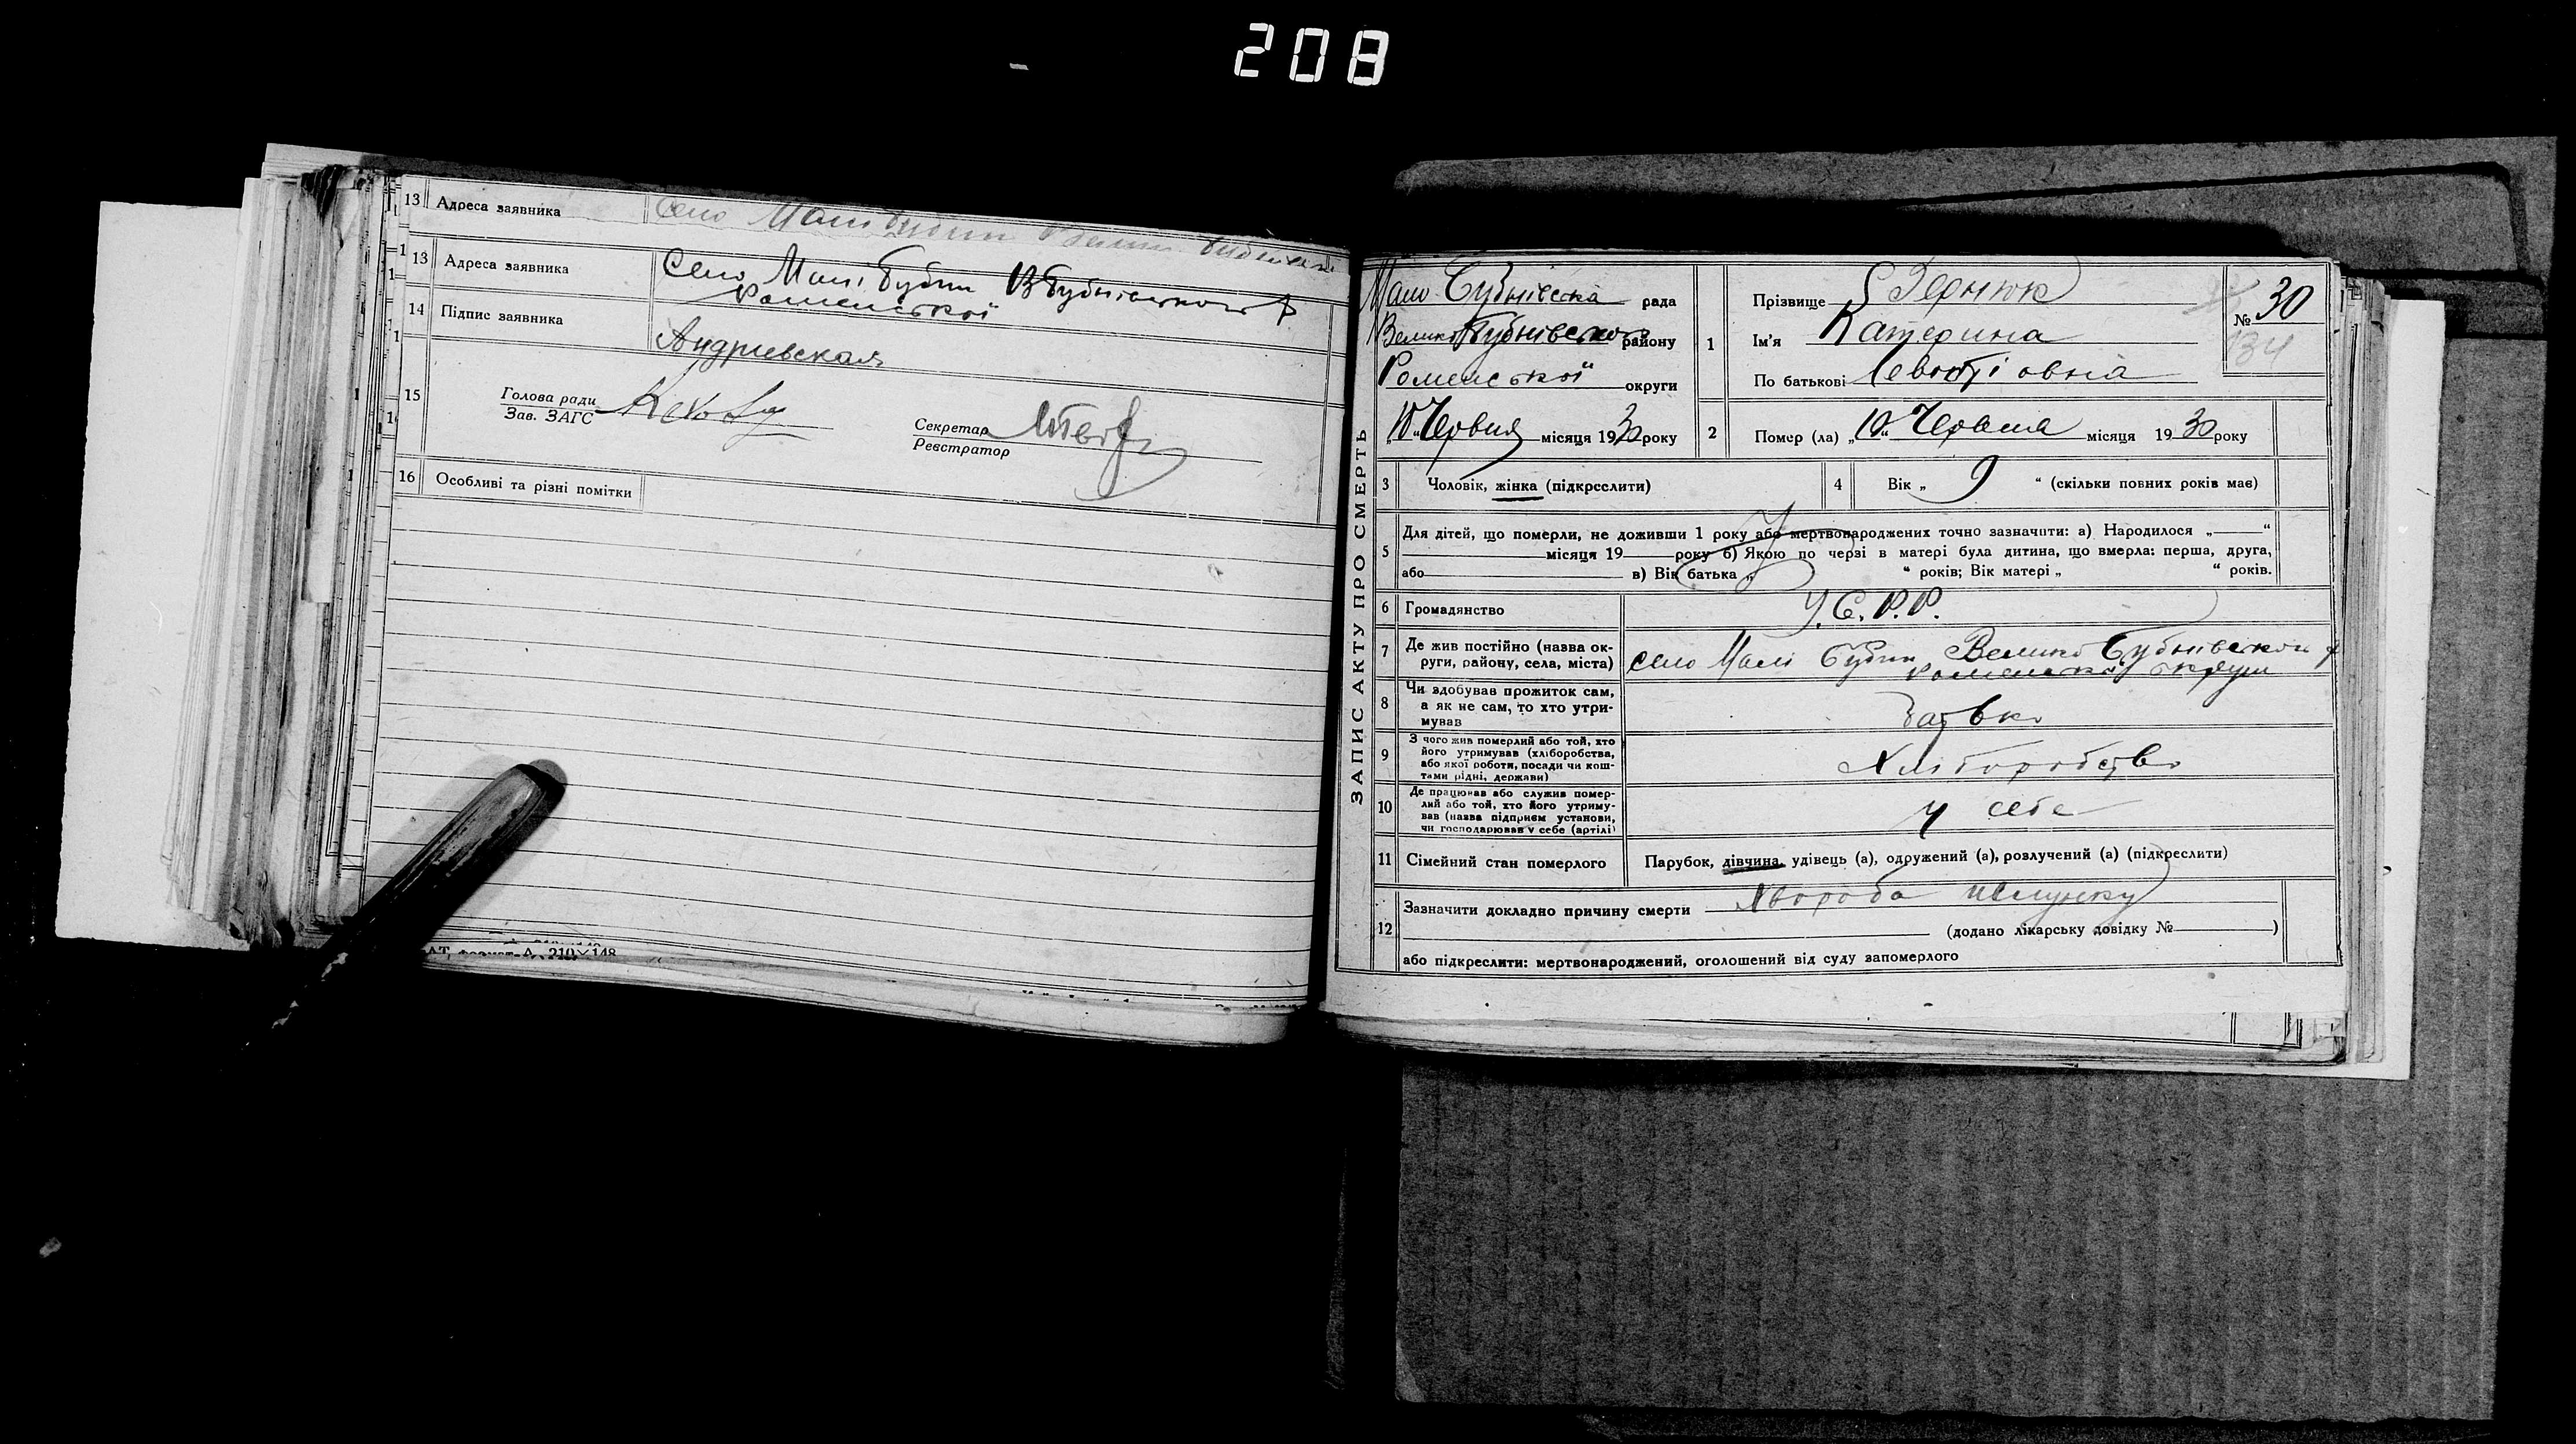 208
13 Адреса заявника Село Малі Бубни Велик. Бубнівськ
13 Адреса заявника Село Малі Бубни В Бубнівського р
Роменської
14 Підпис заявника Андриевская
15 Голова ради
Зав. ЗАГС
Секретар
Реєстратор
16 Особливі та різні помітки
А 210×148
ЗАПИС АКТУ ПРО СМЕРТЬ
Мало Бубнівська рада
Велико Бубнівського району
Роменської округи
10 Червня місяця 1930 року
1 Прізвище
Ім'я Катерина
По батькові
№ 30
134
2 Помер (ла) „10“ Червня місяця 1930 року
3 Чоловік, жінка (підкреслити)
4 Вік „ 9 “ (скільки повних років має)
5 Для дітей, що померли, не доживши 1 року або мертвонароджених точно зазначити: а) Народилося „ “
місяця 19 року б) Якою по черзі в матері була дитина, що вмерла: перша, друга,
або в) Вік батька „ “ років; Вік матері „ “ років.
6 Громадянство У.С.Р.Р.
7 Де жив постійно (назва ок-
руги, району, села, міста) село Малі Бубни Велико Бубнівського р
Роменської округи
8 Чи здобував прожиток сам,
а як не сам, то хто утри-
мував батько
9 З чого жив померлий або той, хто
його утримував (хліборобства,
або якої роботи, посади чи кош-
тами рідні, держави) Хліборобство
10 Де працював або служив помер-
лий або той, хто його утриму-
вав (назва підприєм установи,
чи господарював у себе (артілі) у себе
11 Сімейний стан померлого Парубок, дівчина, удівець (а), одружений (а), розлучений (а) (підкреслити)
12 Зазначити докладно причину смерти Хвороба шлунку
(додано лікарську довідку № )
або підкреслити: мертвонароджений, оголошений від суду запомерлого